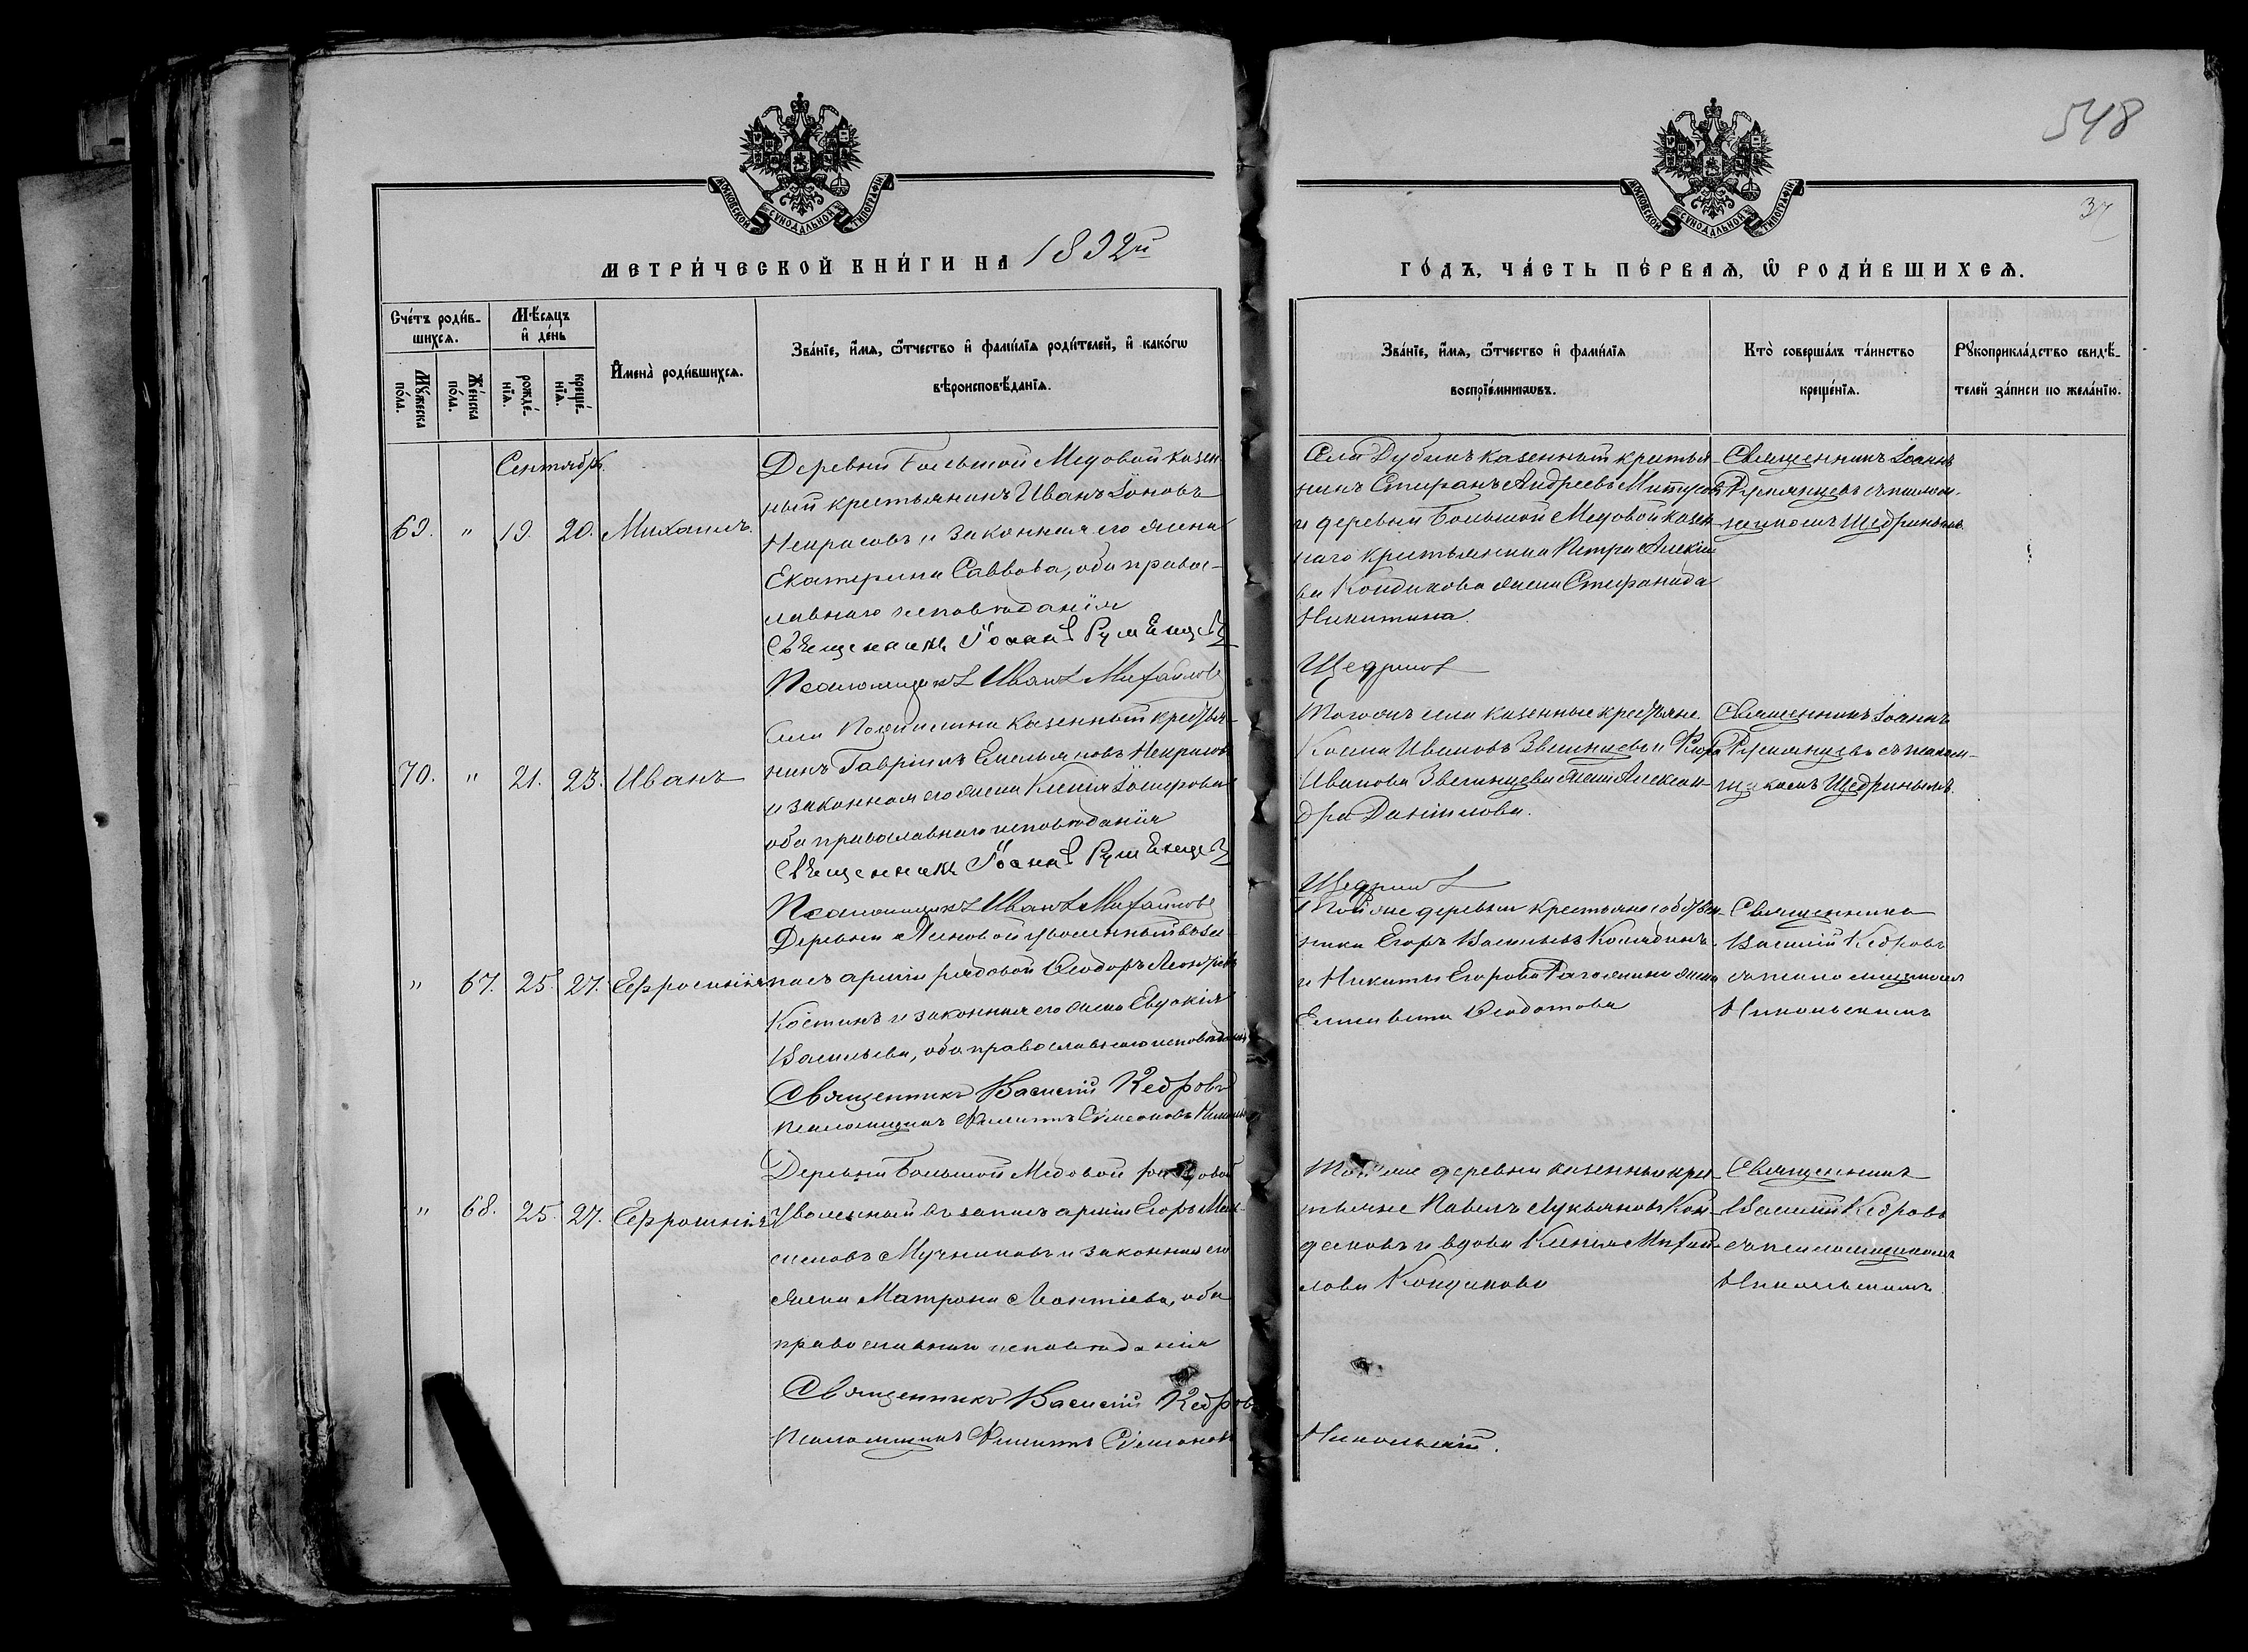 548
37
МОСКОВСКОЙ СУНОДАЛЬНОЙ ТИПОГРАФІИ
МОСКОВСКОЙ СУНОДАЛЬНОЙ ТИПОГРАФІИ
МЕТРИ́ЧЕСКОЙ КНИ́ГИ НА 1892й
ГО́ДЪ, ЧА́СТЬ ПЕ́РВАѦ, Ѿ РОДИ́ВШИХСѦ.
Сче́тъ роди́в-
шихсѧ.
Мꙋ́жеска
по́ла.
Же́нска
по́ла.
Мѣ́сяцъ
и҆ де́нь
рожде́-
нїѧ.
креще́-
нїѧ.
И҆мена̀ роди́вшихсѧ.
Зва́нїе, и҆́мѧ, ѻ҆́тчество и҆ фами́лїѧ роди́телей, и҆ како́гѡ
вѣроисповѣ́данїѧ.
Зва́нїе, и҆́мѧ, ѻ҆́тчество и҆ фами́лїѧ
воспрїе́мникѡвъ.
Кто̀ соверша́лъ та́инство
креще́нїѧ.
Рꙋкоприкла́дство свидѣ́-
телей за́писи по жела́нїю.
Сентябрь.
69. " 19. 20. Михаилъ.
Деревни Большой Медовой казен
ный крестьянинъ Иванъ Іоновъ
Некрасовъ и законная его жена
Екатерина Саввова, оба правос-
лавнаго исповѣданія
Священникъ Іоаннъ Румянцевъ
Псаломщикъ Иванъ Михайловъ
Села Дубинъ казенный крестья-
нинъ Стефанъ Андреевъ
и деревни Большой Медовой казен-
наго крестьянина Петра Алексѣе
ва Кондакова жена Стефанида
Никитина.
Щедринъ
Священникъ Іоаннъ
Румянцевъ съ псалом-
щикомъ Щедринымъ.
70. " 21. 23. Иванъ
Села казенный крестья-
нинъ Гавріилъ Емельяновъ
и законная его жена Ксенія Іосифова
оба православнаго исповѣданія
Священникъ Іоаннъ Румянцевъ
Псаломщикъ Иванъ Михайловъ
Тогожъ села казенные крестьяне
Косма Ивановъ Звегинцевъ и
Иванова Звегинцева жена Алексан-
дра Данилова.
Щедринъ
Священникъ Іоаннъ
Румянцевъ съ псалом-
щикомъ Щедринымъ.
" 67. 25. 27. Ефросинія
Деревни уволенный въ за-
пасъ арміи рядовой Ѳеодоръ
Костинъ и законная его жена Евдокія
Васильева, оба православнаго исповѣданія
Священникъ Василій Кедровъ
Псаломщикъ Филиппъ Симеоновъ
Той же деревни крестьяне собствен-
ники Егоръ Васильевъ
и Никиты Егорова жена
Елисавета Ѳедотова
Священникъ
Василій Кедровъ
съ псаломщикомъ
Никольскимъ
" 68. 25. 27. Ефросинія
Деревни Большой Медовой рядовой
уволенный въ запасъ арміи Егоръ Мак-
симовъ Мучниковъ и законная его
жена Матрона Леонтіева, оба
православнаго исповѣданія
Священникъ Василій Кедровъ
Псаломщикъ Филиппъ Симеоновъ
Той же деревни казенные крес-
тьяне Павелъ Лукьяновъ Кон-
даковъ и вдова Ксенія Михай-
лова Кондакова
Никольскій.
Священникъ
Василій Кедровъ
съ псаломщикомъ
Никольскимъ